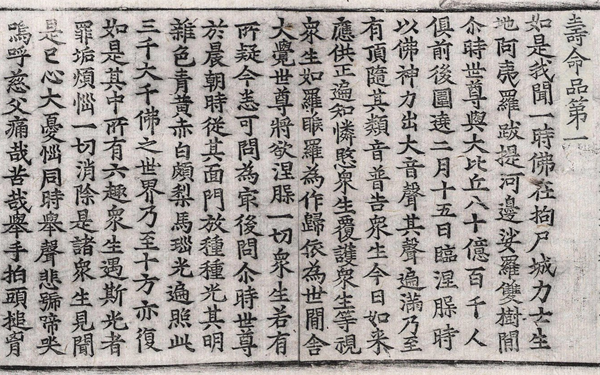 壽命品第一
如是我聞一時佛在拘尸城力士生
地阿夷羅跋提河邊娑羅雙樹間
尒時世尊與大比丘八十億百千人
俱前後圍遶二月十五日臨涅槃時
以佛神力出大音聲其聲遍滿乃至
有頂隨其類音普告眾生今日如来
應供正遍知憐愍眾生覆護眾生等視
眾生如羅睺羅為作歸依為世間舍
大覺世尊將欲涅槃一切眾生若有
所疑今悉可問為㝡後問尒時世尊
於晨朝時從其面門放種種光其明
雜色青黄赤白頗梨馬瑙光遍照此
三千大千佛之世界乃至十方亦復
如是其中所有六趣眾生遇斯光者
罪垢煩惱一切消除是諸眾生見聞
是已心大憂惱同時舉聲悲號啼哭
嗚呼慈父痛哉苦哉舉手拍頭搥胷